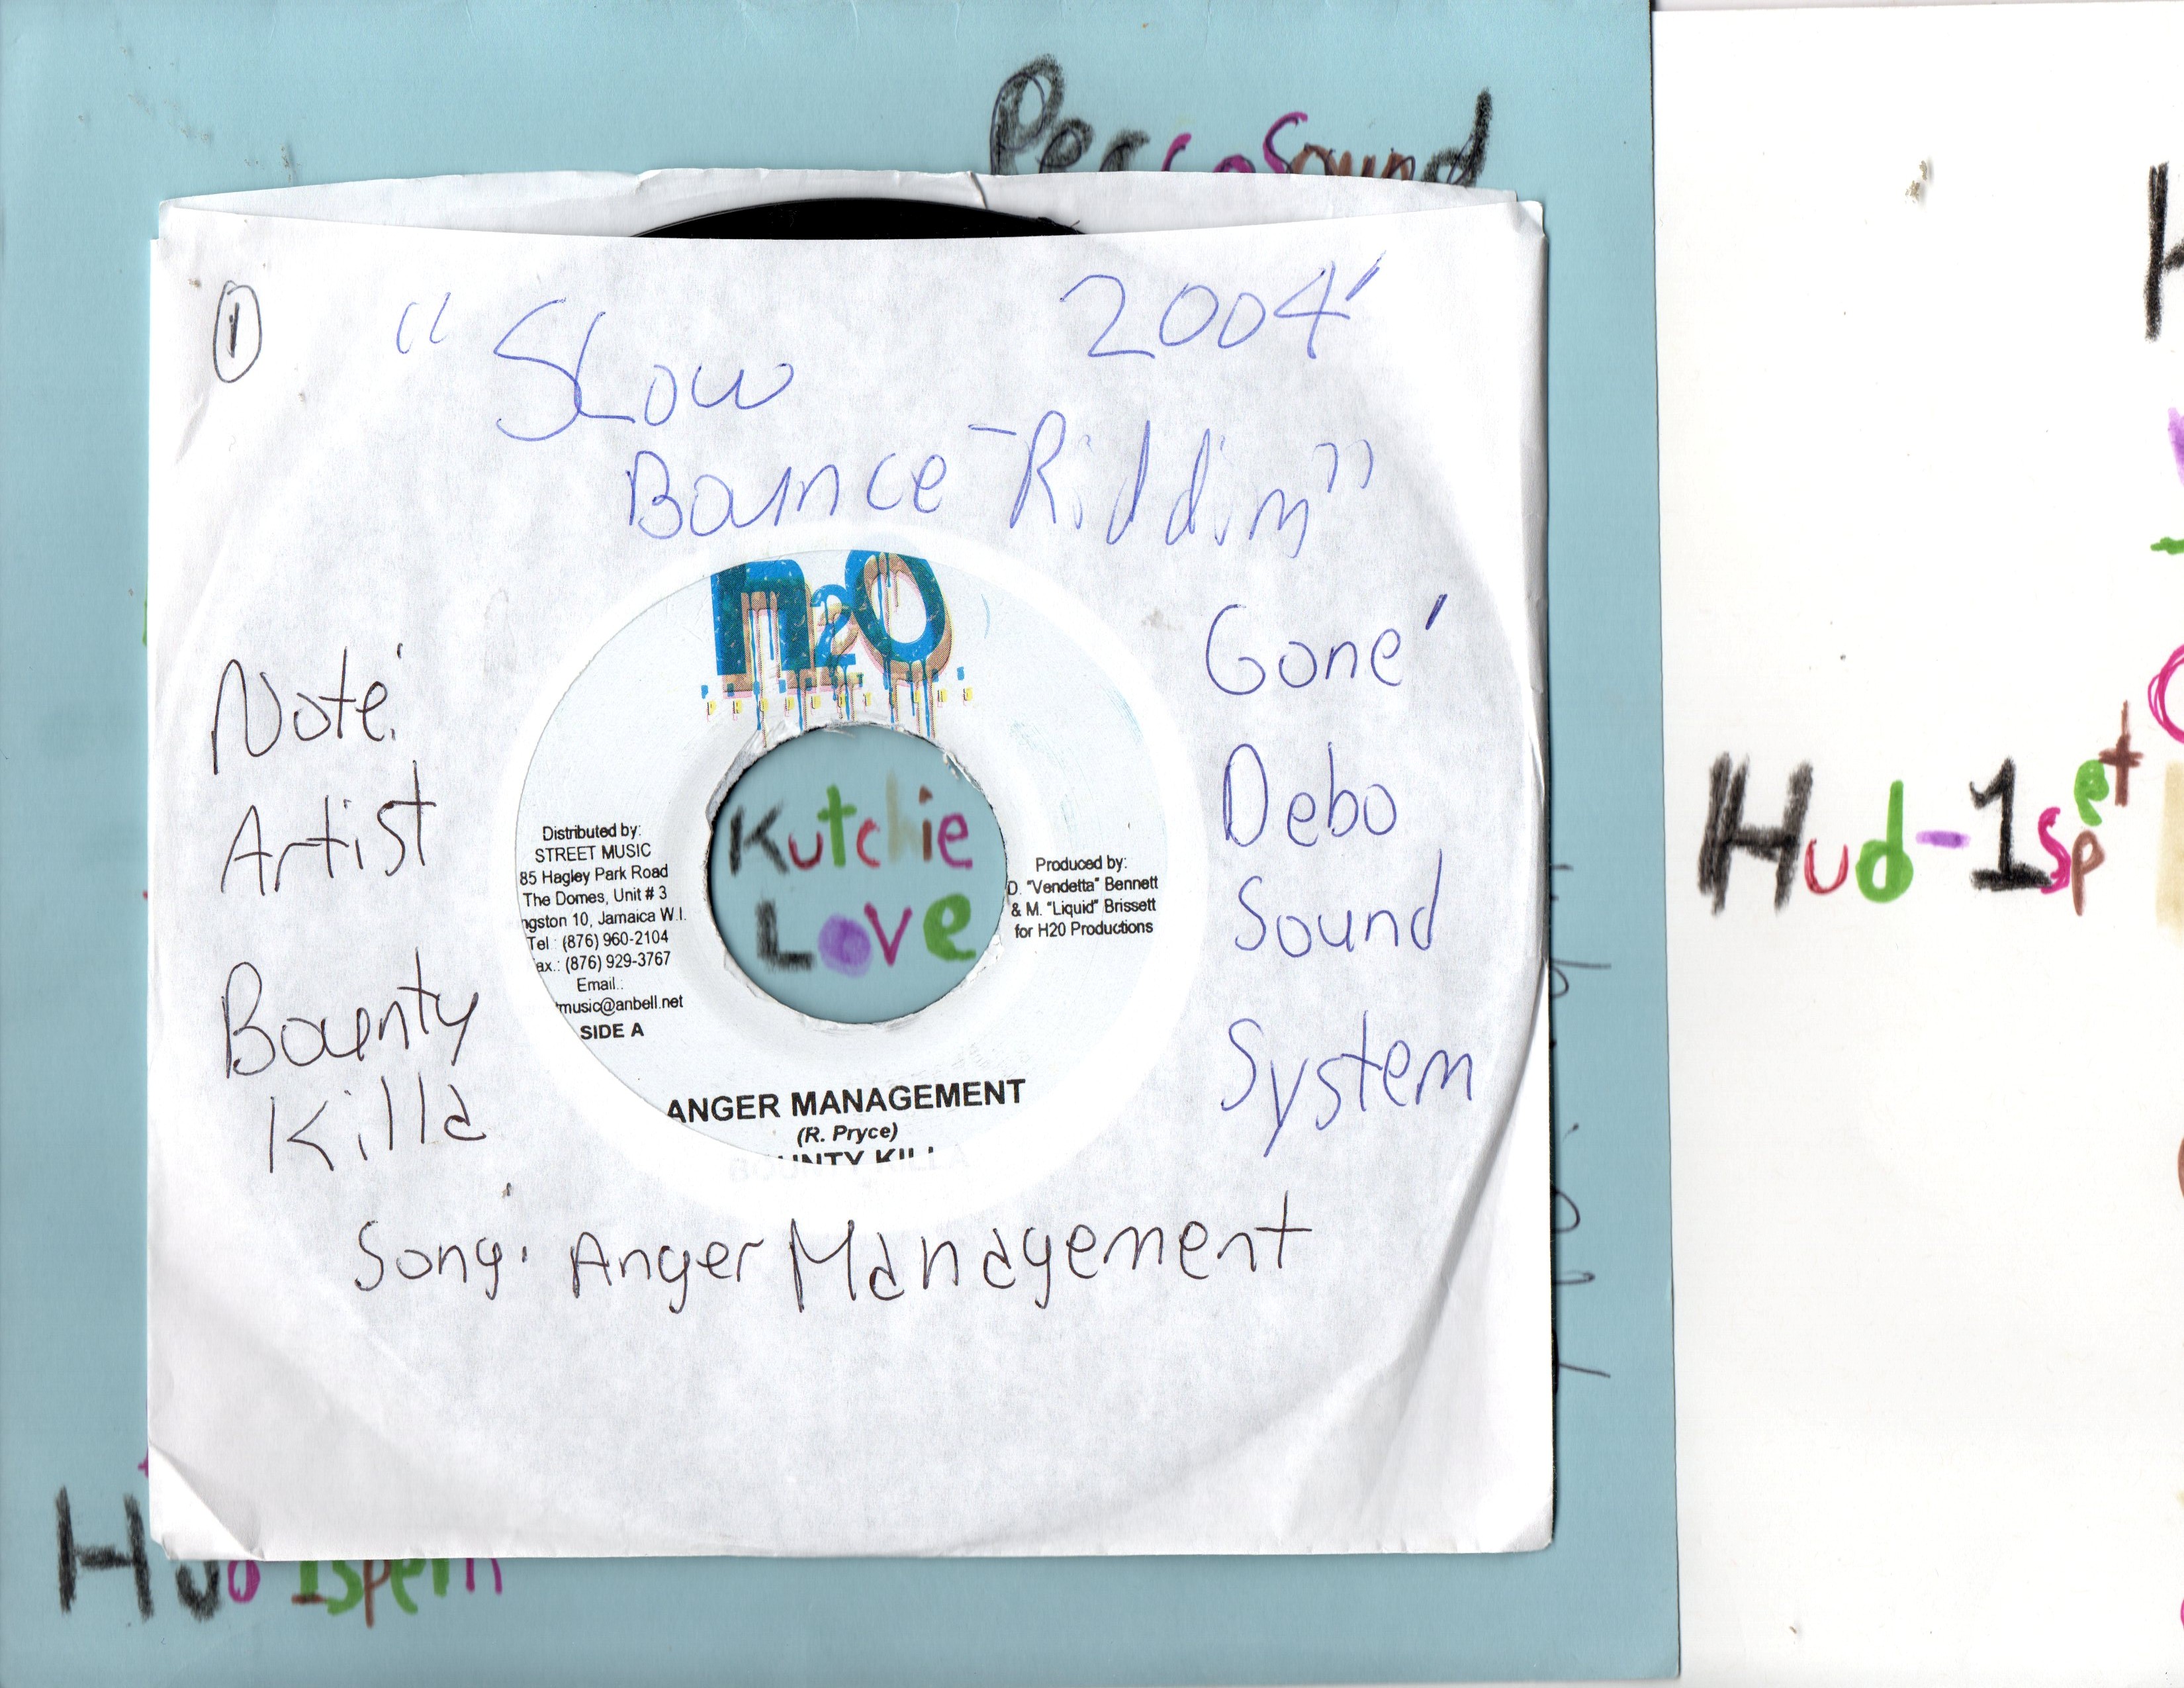 Sound
1
"Slow 2004'
Bounce-Riddim"
h2O
PRODUCTIONS
Note:
Artist
Bounty
Killa
Gone'
Debo
Sound
System
Distributed by:
STREET MUSIC
85 Hagley Park Road
The Domes, Unit # 3
ngston 10, Jamaica W.I.
Tel : (876) 960-2104
ax.: (876) 929-3767
Email.:
music@anbell.net
SIDE A
Kutchie
Love
Produced by:
D. "Vendetta" Bennett
& M. "Liquid" Brissett
for H20 Productions
ANGER MANAGEMENT
(R. Pryce)
BOUNTY KILLA
Song: Anger Management
Hud-1spet
Hud 1spern